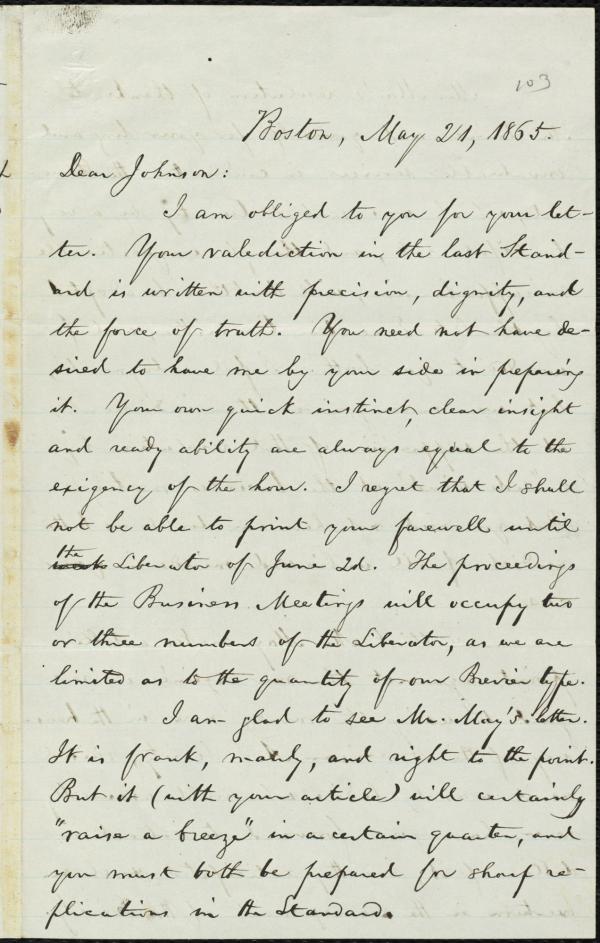 103
Boston, May 21, 1865.
Dear Johnson:
I am obliged to you for your let-
ter. Your valediction in the last Stand-
ard is written with precision, dignity, and
the force of truth. You need not have de-
sired to have me by your side in preparing
it. Your own quick instinct, clear insight
and ready ability are always equal to the
exigency of the hour. I regret that I shall
not be able to print your farewell until
the Liberator of June 2d. The proceedings
of the Business Meetings will occupy two
or three numbers of the Liberator, as we are
limited as to the quantity of our Brevier type.
I am glad to see Mr. May's letter.
It is frank, manly, and right to the point.
But it (with your article) will certainly
"raise a breeze" in a certain quarter, and
you must both be prepared for sharp re-
plications in the Standard.